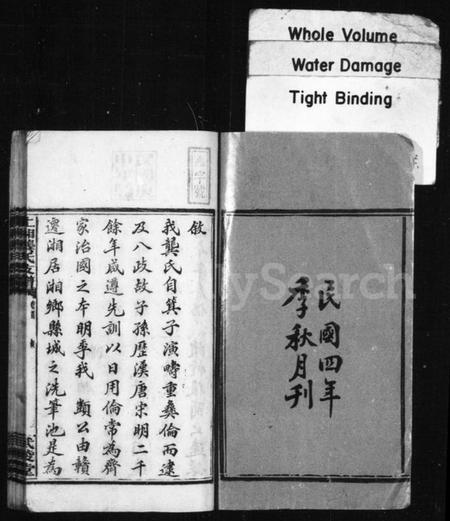 Whole Volume
Water Damage
Tight Binding
民國四年
季秋月刊
敘
我龔氏自箕子演疇重彝倫而逮
及八政故子孫歷漢唐宋明二千
餘年咸遵先訓以日用倫常為齊
家治國之本明乎我 類公由贛
遷湘居湘鄉縣城之洗筆池是為